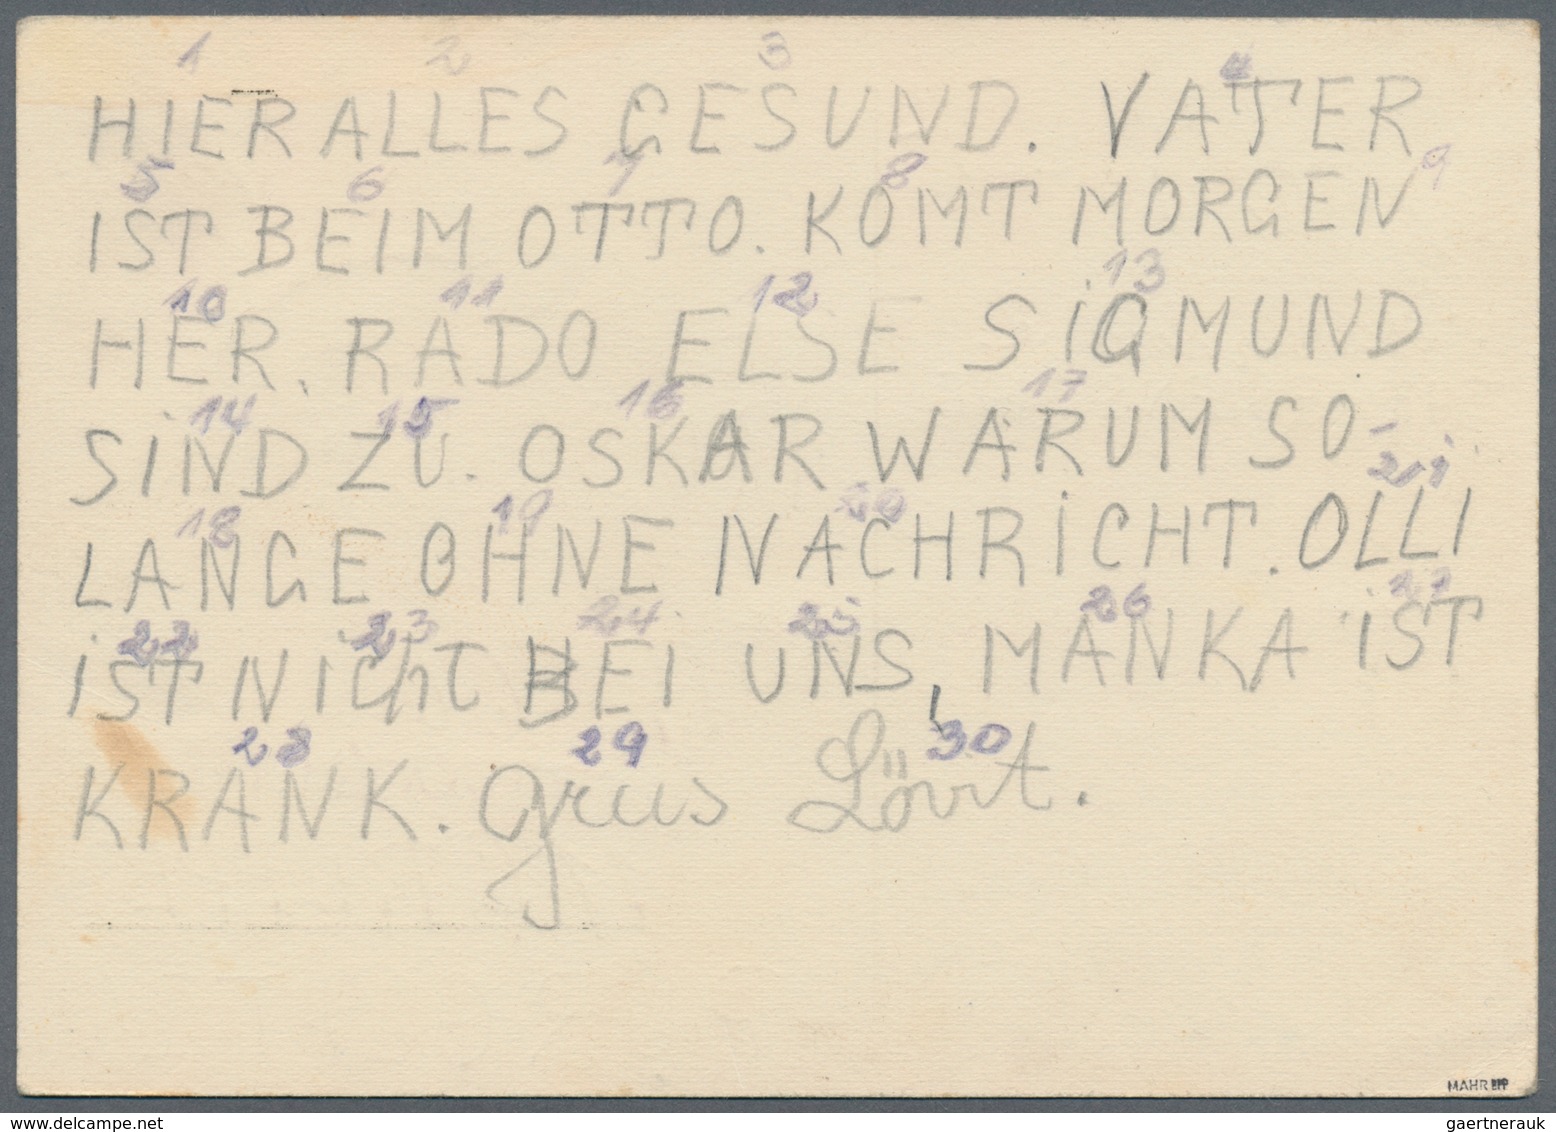 1 2 3 4
HIER ALLES GESUND. VATER
5 6 7 8 9
IST BEIM OTTO. KOMT MORGEN
10 11 12 13
HER. RADO ELSE SIGMUND
14 15 16 17
SIND ZU. OSKAR WARUM SO-
18 19 20 21
LANGE OHNE NACHRICHT. OLLI
22 23 24 25 26 27
IST NICHT BEI UNS, MANKA IST
28 29 30
KRANK. Grus
MAHR BPP
gaertnerauk@delcampe.net